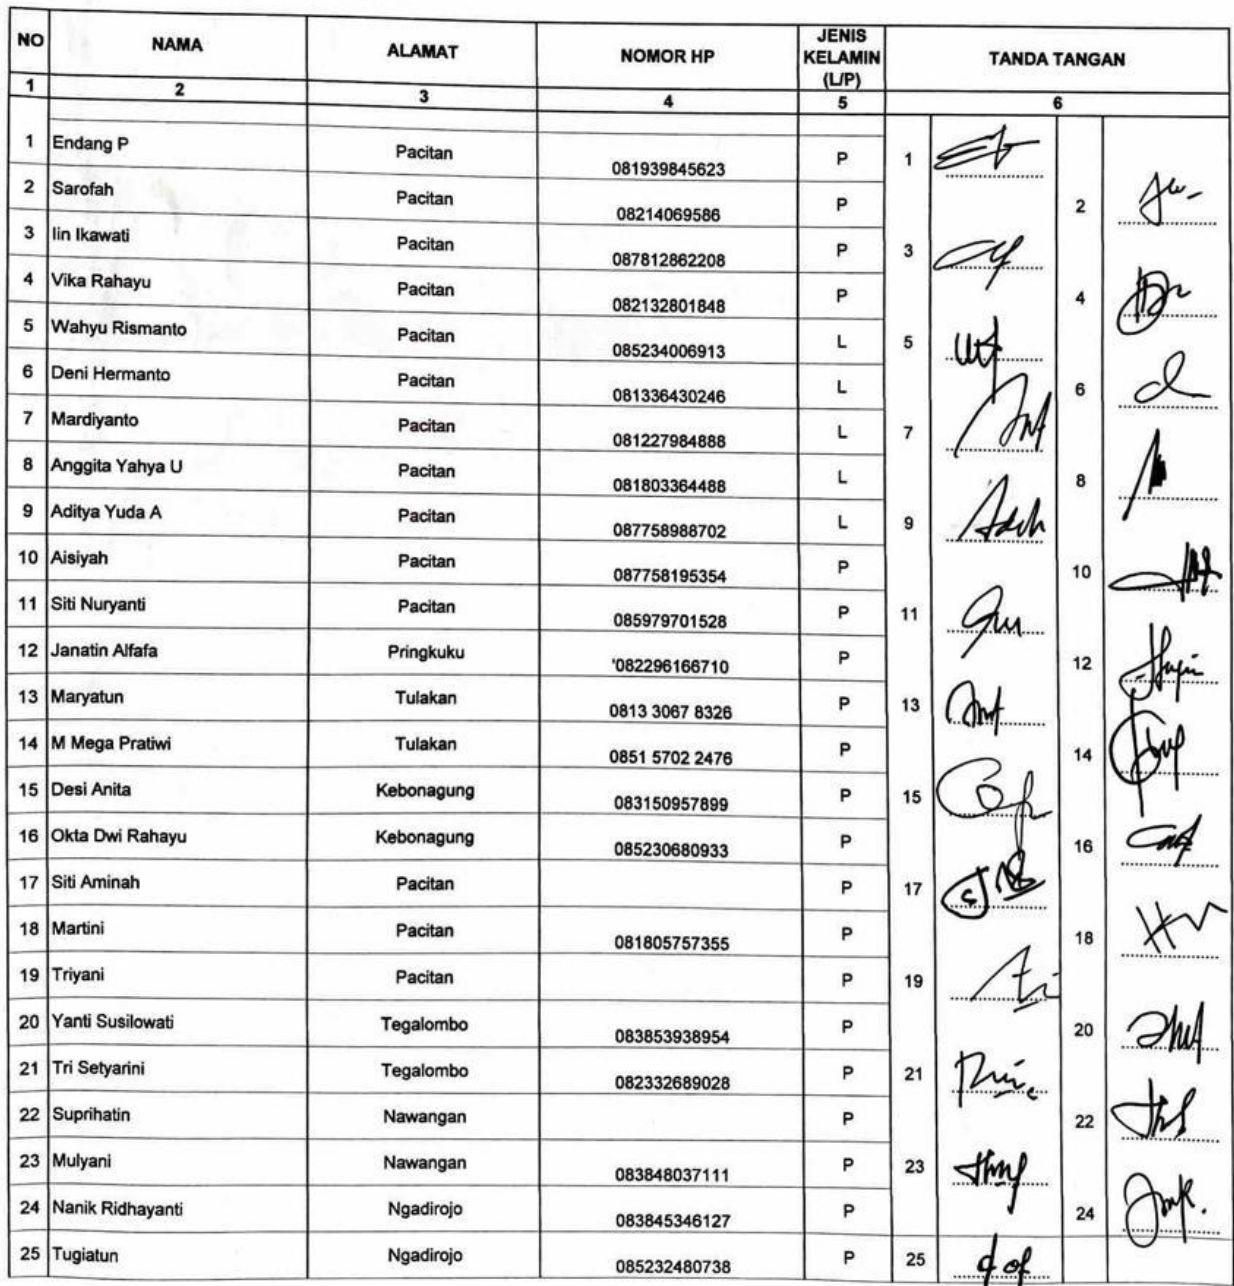 NO NAMA ALAMAT NOMOR HP JENIS KELAMIN (L/P) TANDA TANGAN
1 2 3 4 5 6
1 Endang P Pacitan 081939845623 P 1
2 Sarofah Pacitan 08214069586 P 2
3 Iin Ikawati Pacitan 087812862208 P 3
4 Vika Rahayu Pacitan 082132801848 P 4
5 Wahyu Rismanto Pacitan 085234006913 L 5
6 Deni Hermanto Pacitan 081336430246 L 6
7 Mardiyanto Pacitan 081227984888 L 7
8 Anggita Yahya U Pacitan 081803364488 L 8
9 Aditya Yuda A Pacitan 087758988702 L 9
10 Aisiyah Pacitan 087758195354 P 10
11 Siti Nuryanti Pacitan 085979701528 P 11
12 Janatin Alfafa Pringkuku '082296166710 P 12
13 Maryatun Tulakan 0813 3067 8326 P 13
14 M Mega Pratiwi Tulakan 0851 5702 2476 P 14
15 Desi Anita Kebonagung 083150957899 P 15
16 Okta Dwi Rahayu Kebonagung 085230680933 P 16
17 Siti Aminah Pacitan P 17
18 Martini Pacitan 081805757355 P 18
19 Triyani Pacitan P 19
20 Yanti Susilowati Tegalombo 083853938954 P 20
21 Tri Setyarini Tegalombo 082332689028 P 21
22 Suprihatin Nawangan P 22
23 Mulyani Nawangan 083848037111 P 23
24 Nanik Ridhayanti Ngadirojo 083845346127 P 24
25 Tugiatun Ngadirojo 085232480738 P 25